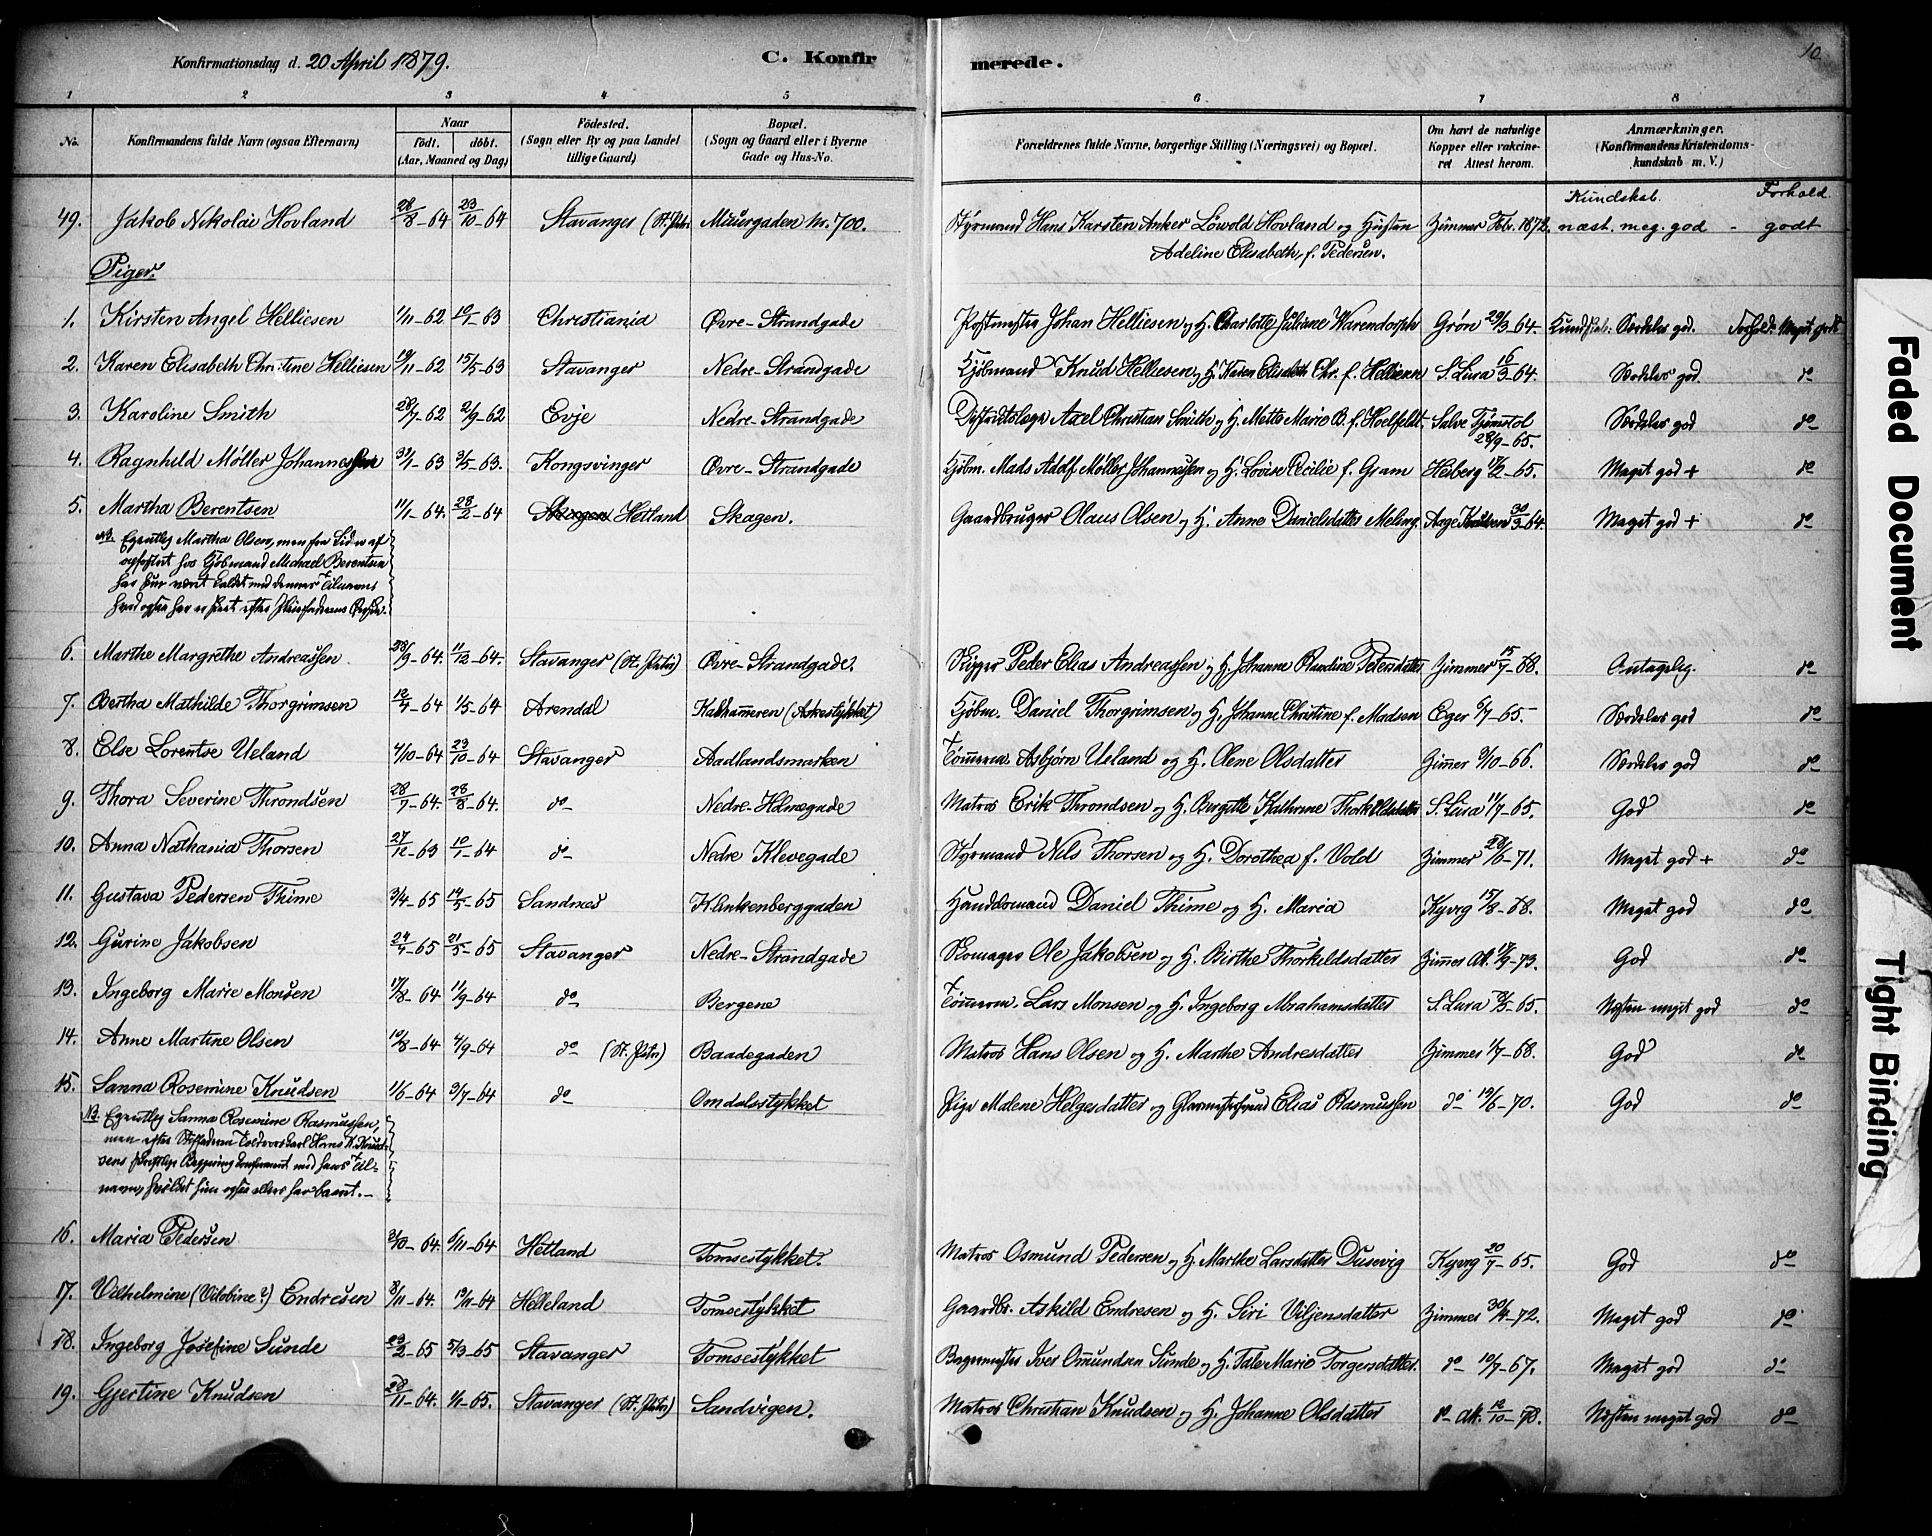 Konfirmationsdag d. 20 April 1879. C. Konfirmerede. 10
1 2 3 4 5 6 7 8
No. Konfirmandens fulde Navn (ogsaa Efternavn) Naar født. døbt. (Aar, Maaned og Dag) Fødested. (Sogn eller By og paa Landet tillige Gaard) Bopæl. (Sogn og Gaard eller i Byerne Gade og Hus-No. Forældrenes fulde Navne, borgerlige Stilling (Næringsvei) og Bopæl. Om havt de naturlige Kopper eller vakcineret Attest herom. Anmærkninger. (Konfirmandens Kristendomskundskab m. V.)
Kundskab. Forhold.
49. Jakob Nikolai Hovland 28/8-64 23/10-64 Stavanger (St. Petri Muurgaden Nr. 700. Styrmand Hans Karsten Anker Løvold Hovland og Hustru Zimmer Febr. 1872. næst. meg. god - godt
Adeline Elisabeth, f. Pedersen.
Piger.
1. Kirsten Angel Helliesen 1/11-62 10/1-63 Christiania Øvre-Strandgade Postmester Johan Helliesen og H. Charlotte Juliane Warendorph Grøn 29/3-64. Kundskab: Særdeles god. Forhold: Meget godt
2. Karen Elisabeth Christine Helliesen 19/11-62 15/5-63 Stavanger Nedre-Strandgade Kjøbmand Knud Helliesen og H. Karen Elisabeth Chr. f. Helliesen S. Lura 16/3-64. Særdeles god. do
3. Karoline Smith 28/7-62 2/9-62 Evje Nedre-Strandgade Distriktslæge Axel Christian Smith og H. Mette Marie B. f. Hoelfeldt. Salve Tjømstol 28/9-65. Særdeles god do
4. Ragnhild Møller Johannessen 31/1-63 3/5-63. Kongsvinger Øvre-Strandgade Kjøbm. Mads Adolf Møller Johannessen og H. Lovise Cecilie f. Gram Heiberg 12/2-65. Meget god + do
5. Martha Berentsen 11/1-64. 28/2-64 Hetland Skagen. Gaardbruger Olaus Olsen og H. Anne Danielsdatter Meling. Aage Knudsen 30/3-64. Meget god + do
NB. Egentlig Martha Olsen, men fra Liden af
opfostret hos Kjøbmand Michael Berentsen
har hun været kaldet med dennes Tilnavn
6. Marthe Margrethe Andreassen 28/9-64. 11/12-64. Stavanger (St. Petri) Øvre-Strandgade. Skipper Peder Elias Andreassen og H. Johanne Randine Petersdatter Zimmer 15/7-68. Antagelig. do
7. Bertha Mathilde Thorgrimsen 12/4-64 1/5-64 Arendal Kalhammeren (Askestykket) Kjøbm. Daniel Thorgrimsen og H. Johanne Christine f. Madsen Eger 6/7-65. Særdeles god do
8. Else Lorentse Ueland 4/10-64 23/10-64 Stavanger Aadlandsmarken Tømmerm. Asbjørn Ueland og H. Olene Olsdatter Zimmer 9/10-66. Særdeles god do
9. Thora Severine Throndsen 28/7-64. 28/8-64. do Nedre-Holmegade Matros Erik Throndsen og H. Burgitte Kathrine Thorkildsdatter S. Lura 11/7-65. God do
10. Anna Nathania Thorsen 27/12-63 10/1-64 do Nedre Klevegade Styrmand Nils Thorsen og H. Dorothea f. Vold Zimmer 28/6-71. Meget god + do
11. Gustava Pedersen Thime 3/4-65 14/5-65 Sandnes Klinkenberggaden Handelsmand Daniel Thime og H. Maria Kyvig 15/8-68. Meget god do
12. Gurine Jakobsen 24/4-65 21/5-65 Stavanger Nedre-Strandgade Skomager Ole Jakobsen og H. Birthe Thorkildsdatter Zimmer Att. 12/9-73. God do
13. Ingeborg Marie Monsen 17/8-64 11/9-64 do Bergene Tømmerm. Lars Monsen og H. Ingeborg Abrahamsdatter S. Lura 12/5-65. Næsten meget god do
14. Anne Martine Olsen 10/8-64 4/9-64 do (St. Petri) Baadegaden Matros Hans Olsen og H. Marthe Andresdatter Zimmer 1/7-68. God do
15. Sanna Rosemine Knudsen 11/6-64 3/7-64 do Omdalsstykket Pige Malene Helgesdatter og Glarmestersvend Elias Rasmussen do 19/6-70. God do
NB. Egentlig Sanna Rosemine Rasmussen,
men efter Stiffaderen Toldvorskarl Hans K. Knudsens
skriftlige Begjæring konfirmeret med hans Tilnavn,
hvilket hun ogsaa ellers har baaret.
16. Maria Pedersen 2/10-64. 6/11-64 Hetland Tomsestykket. Matros Osmund Pedersen og H. Marthe Larsdatter Dusevig Kyvig 20/7-65. God do
17. Vilhelmine (Vilobine?) Endresen 8/11-64. 19/11-64 Helleland Tomsestykket Gaardbr. Askild Endresen og H. Siri Viljensdatter Zimmer 30/4-72. Meget god do
18. Ingeborg Josefine Sunde 23/2-65 5/3-65 Stavanger Tomsestykket Bagermester Iver Omundsen Sunde og H. Tale Marie Torgersdatter. do 10/9-67. Meget god do
19. Gjertine Knudsen 28/11-64. 1/1-65. Stavanger (St. Petri) Sandvigen. Matros Christian Knudsen og H. Johanne Olsdatter do Att. 12/10-78. Næsten meget god do
Faded Document
Tight Binding